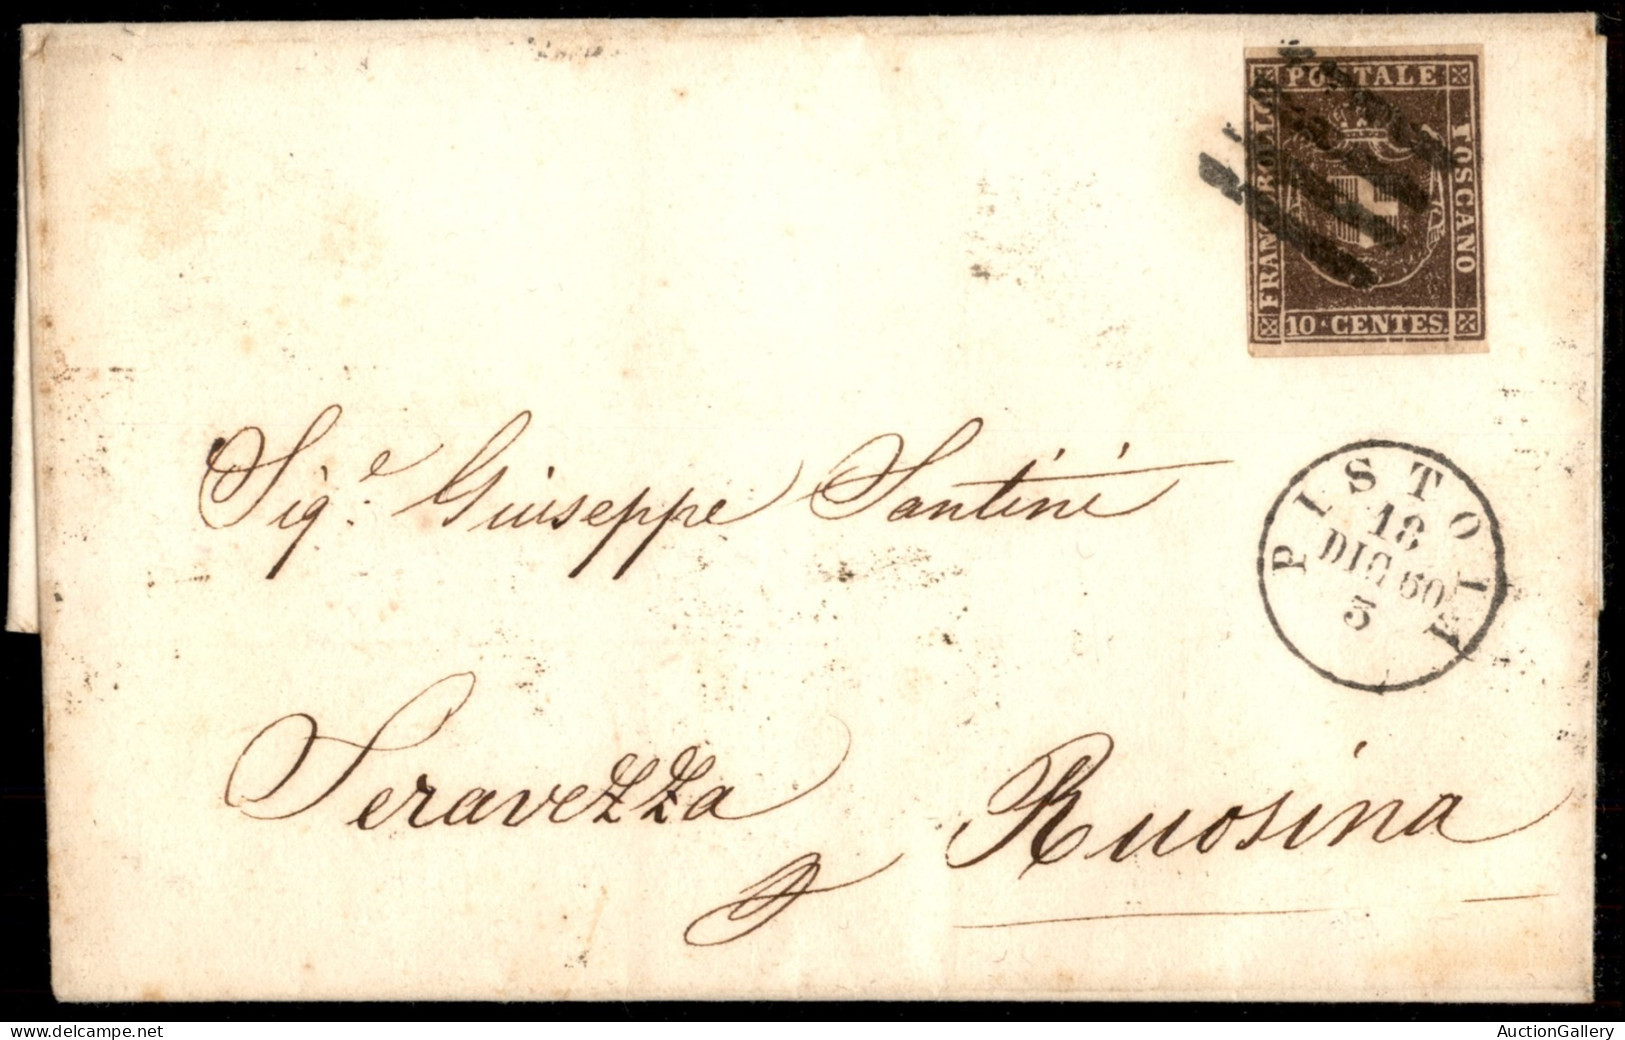 POSTALE
FRANCOBOLLO
TOSCANO
10 CENTES.
Sig.e Giuseppe Santini
PISTOIA
18
DIC 60
3
Seravezza
p Ruosina
www.delcampe.net
AuctionGallery